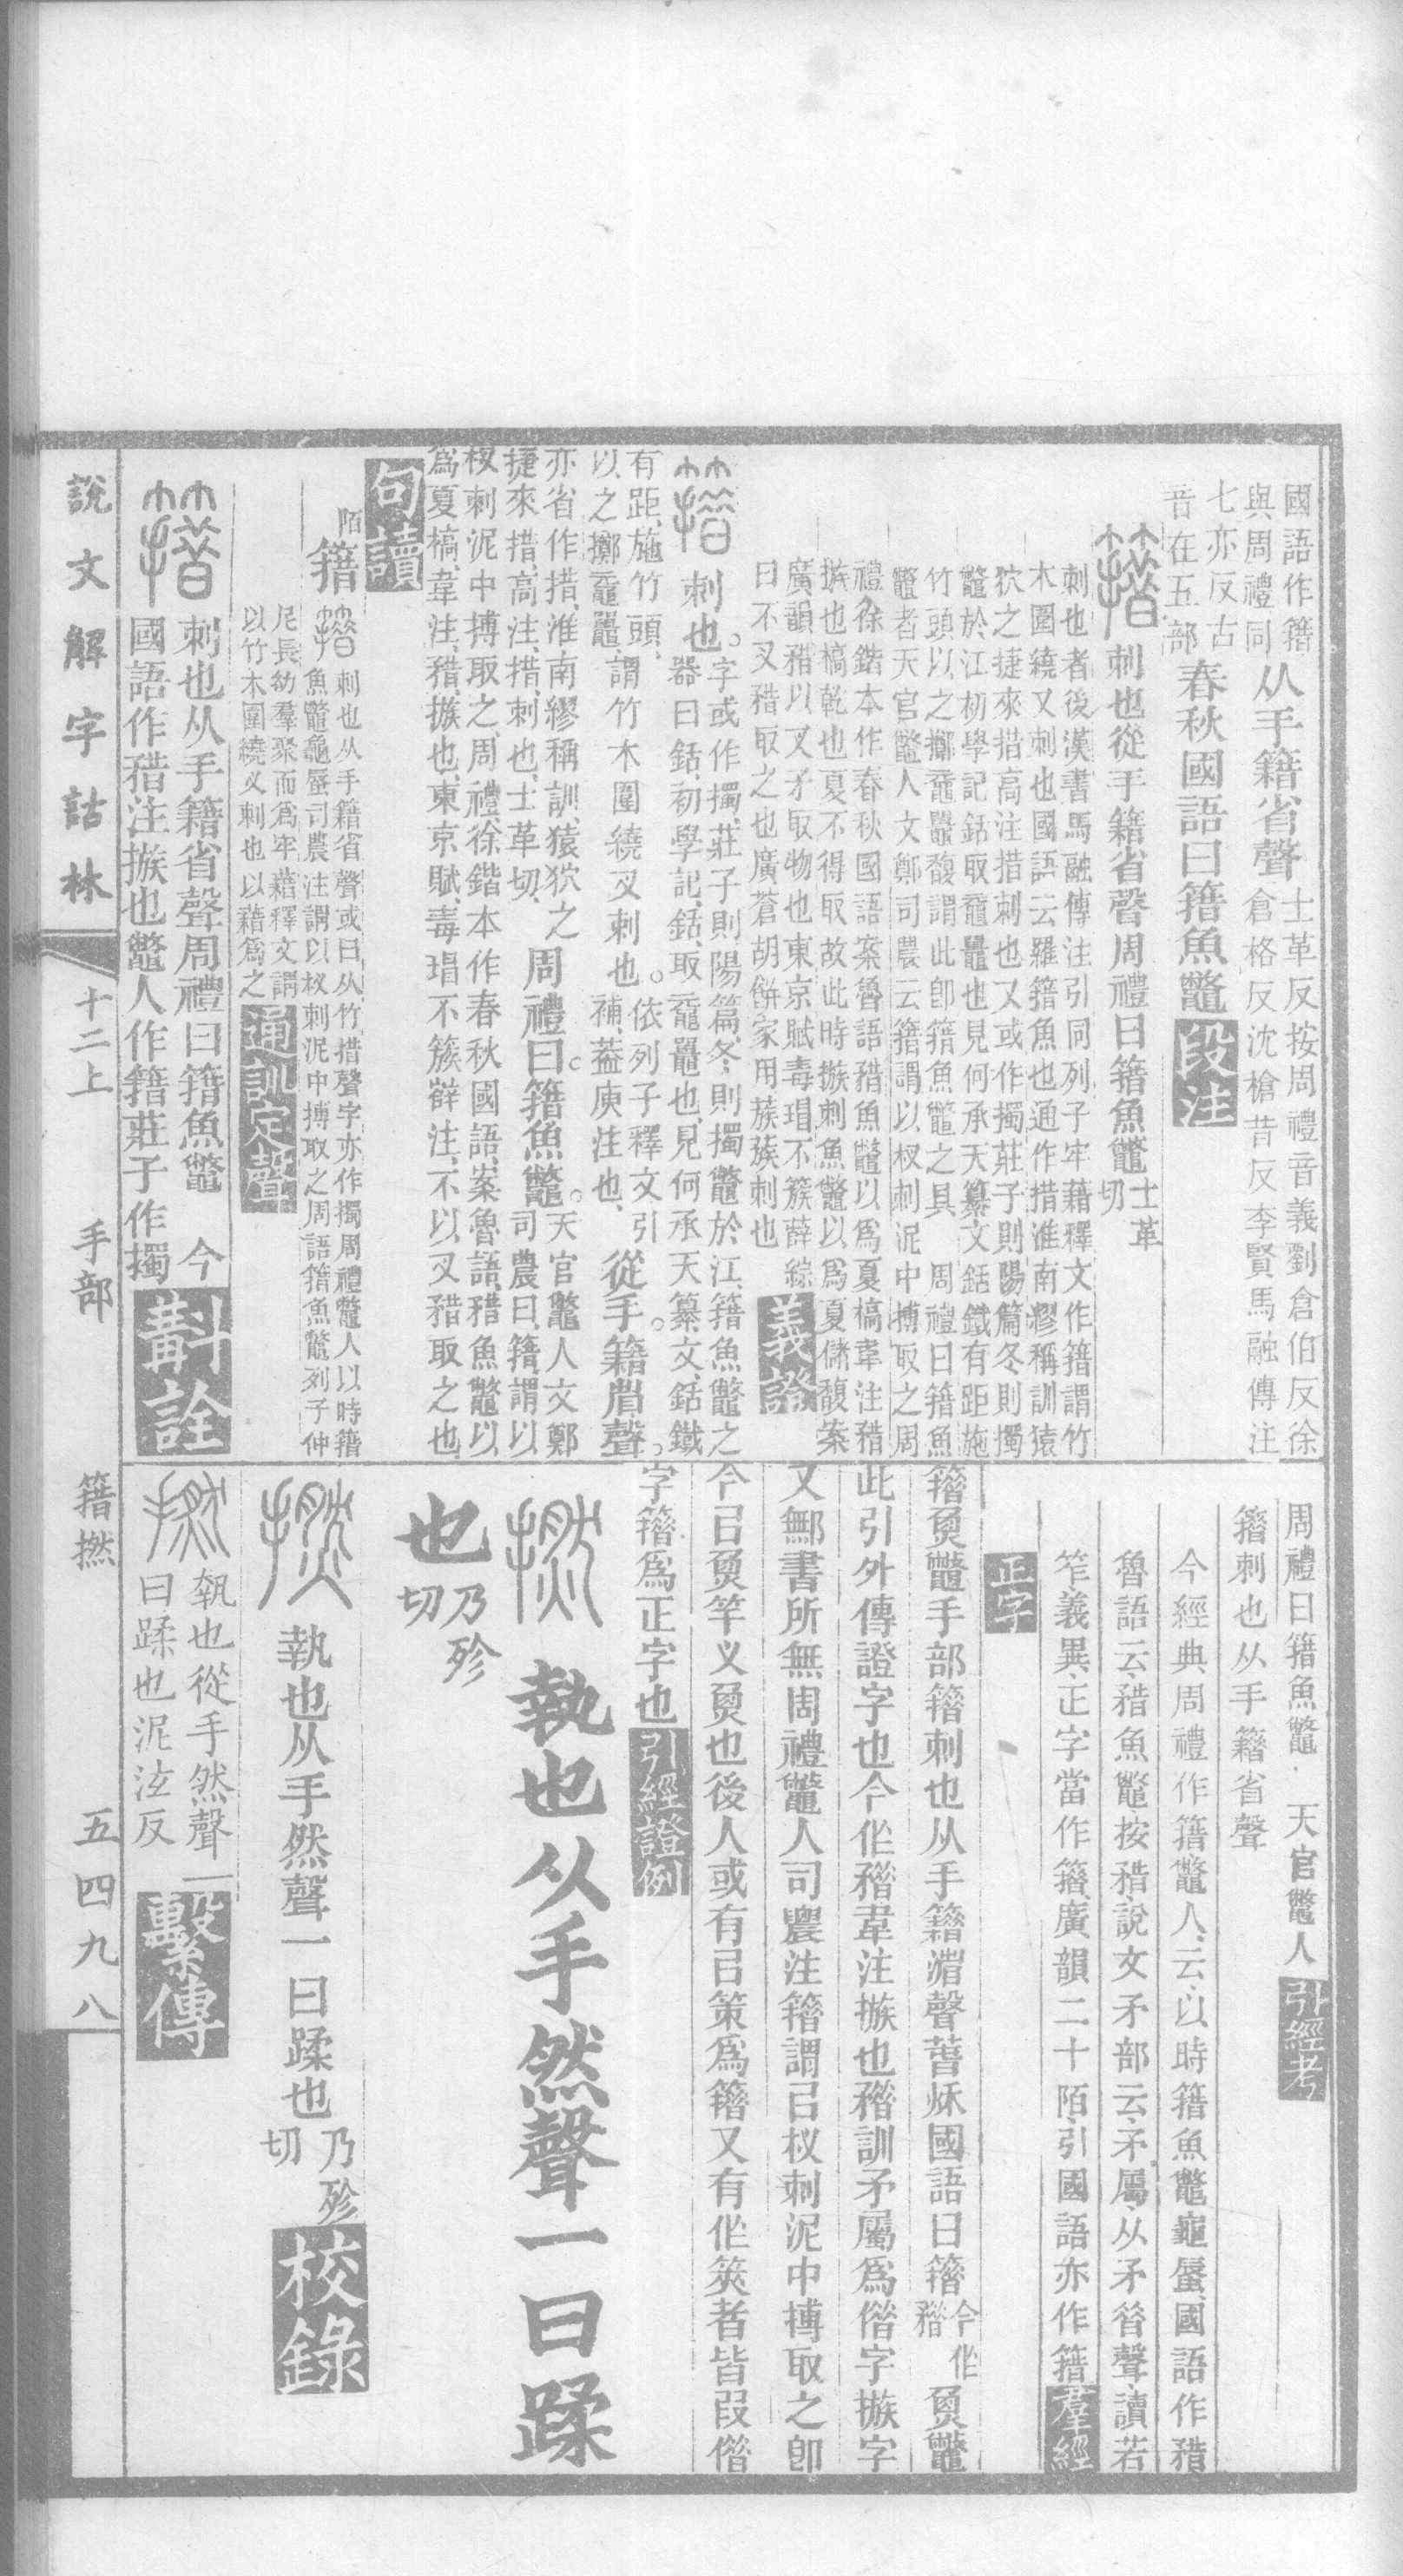 國語作籍
與周禮同
从手籍省聲
士革反按周禮音義劉倉伯反徐
倉格反沈槍昔反李賢馬融傳注
七亦反古
音在五部
春秋國語曰籍魚鼈
段注
刺也從手籍省聲周禮曰籍魚鼈
士革
切
刺也者後漢書馬融傳注引同列子牢藉釋文作籍謂竹
木圍繞又刺也國語云羅籍魚也通作措淮南繆稱訓猿
狖之捷來措高注措刺也又或作擉莊子則陽篇冬則擉
鼈於江初學記銛取黿鼉也見何承天纂文銛鐵有距施
竹頭以之擲黿鼉馥謂此卽籍魚鼈之具
周禮曰籍魚
鼈者天官鼈人文鄭司農云籍謂以杈刺泥中搏取之周
禮徐鍇本作春秋國語案魯語矠魚鼈以爲夏槁韋注矠
㨖也槁乾也夏不得取故此時㨖刺魚鼈以爲夏儲馥案
廣韻矠以叉矛取物也東京賦毒瑁不蔟薛綜
曰不叉矠取之也廣蒼胡餅家用蔟蔟刺也
義證
刺也。
字或作擉、莊子則陽篇、冬則擉鼈於江、籍魚鼈之
器曰銛、初學記、銛、取黿鼉也、見何承天纂文、銛鐵
有距、施竹頭、
以之擲黿鼉、
謂竹木圍繞叉刺也。
依列子釋文引
補、葢庾注也、
從手。籍省聲。
亦省作措、淮南繆稱訓、猿狖之
捷來措、高注、措、刺也、士革切、
周禮曰。籍魚鼈。
天官鼈人文鄭
司農曰、籍、謂以
杈刺泥中搏取之、周禮、徐鍇本作春秋國語、案魯語、矠魚鼈以
爲夏槁、韋注、矠、㨖也、東京賦、毒瑁不蔟、薛注、不以叉矠取之也、
句讀
陌
籍
刺也从手籍省聲或曰从竹措聲字亦作擉周禮鼈人以時籍
魚鼈龜蜃司農注謂以杈刺泥中搏取之周語籍魚鼈列子仲
尼長幼羣聚而爲牢藉釋文謂
以竹木圍繞又刺也以藉爲之
通訓定聲
刺也从手籍省聲周禮曰籍魚鼈
今
國語作矠注㨖也鼈人作籍莊子作擉
斠詮
周禮曰籍魚鼈.天官鼈人
引經考
籍刺也从手籍省聲
今經典周禮作籍鼈人、云、以時籍魚鼈龜蜃、國語作矠
魯語云、矠魚鼈、按矠、說文矛部云、矛屬、从矛㫺聲、讀若
笮、義異、正字當作籍、廣韻二十陌、引國語亦作籍
羣經
正字
籍𩵋鼈手部籍刺也从手籍渻聲萅秌國語曰籍
今㑅
矠
𩵋鼈
此引外傳證字也今㑅矠韋注㨖也矠訓矛屬爲㑄字㨖字
又鄦書所無周禮鼈人司農注籍謂㠯杈刺泥中搏取之卽
今㠯𩵋竿义𩵋也後人或有㠯策爲籍又有㑅筴者皆叚㑄
字籍爲正字也
引經證例
執也从手然聲一曰蹂
也
乃殄
切
執也从手然聲一曰蹂也
乃殄
切
校錄
執也從手然聲一
曰蹂也泥泫反
繫傳
說文解字詁林
十二上
手部
籍撚
五四九八